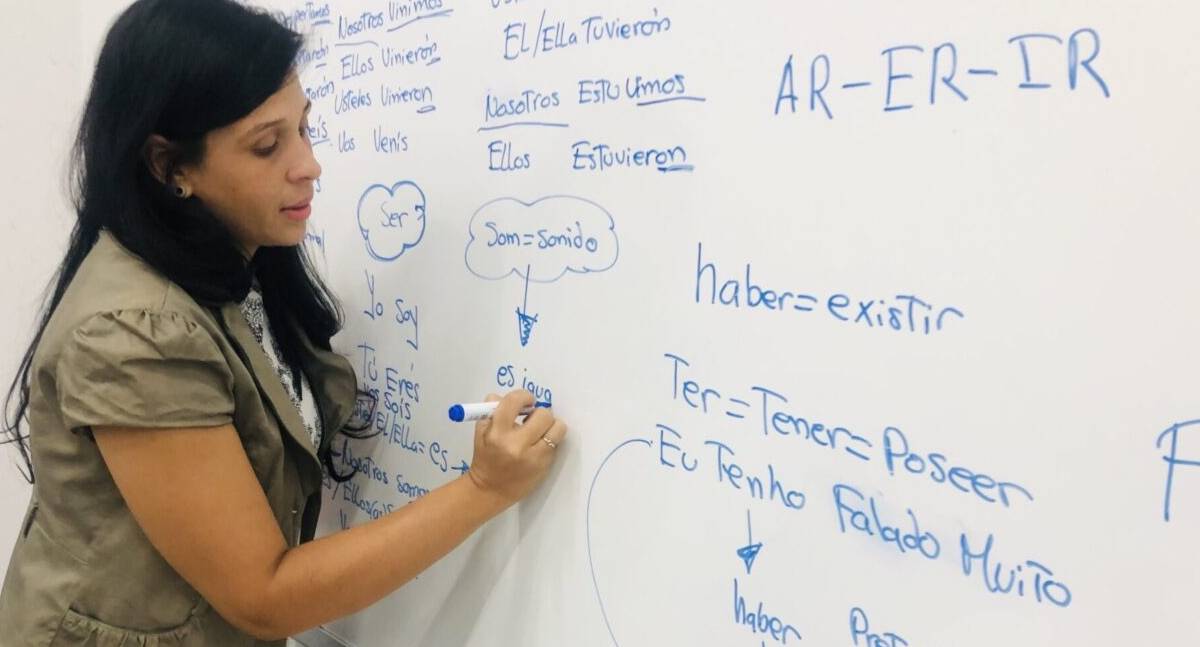 Nosotros Vinimos
Ellos Vinierón
Ustedes Vinieron
Vos Venís
El/Ella Tuvierón
Nosotros Estuvimos
Ellos Estuvieron
AR-ER-IR
Ser
Yo Soy
Tú Erés
Vos Sois
El/Ella = es →
Nosotros
Som = Sonido
es igua
haber = existir
Ter = Tener = Poseer
Eu Tenho Falado Muito
haber